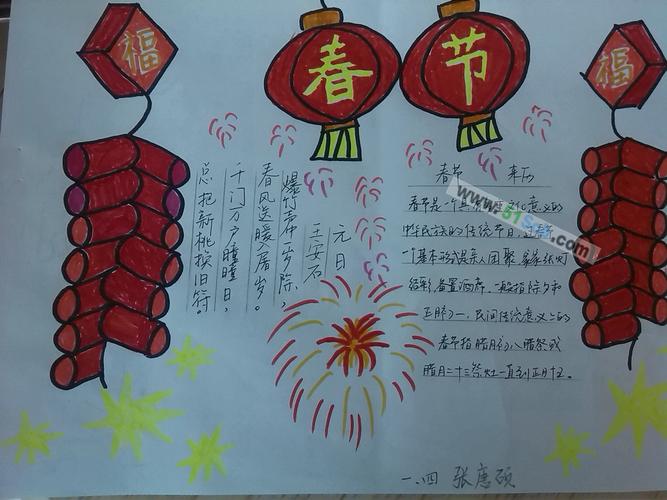 福
春节
福
元日
王安石
爆竹声一岁除,
春风送暖入屠岁。
千门万户瞳瞳日,
总把新桃换旧符。
春节 来历
春节是一个 意义的
中华民族的传统节日
一个基本形式是亲人团聚 灯
结彩 备置酒席 一般指除夕和
正月初一,民间传统意义上的
春节指腊月初八腊祭或
腊月二十三祭灶一直到正月十五。
一、四 张